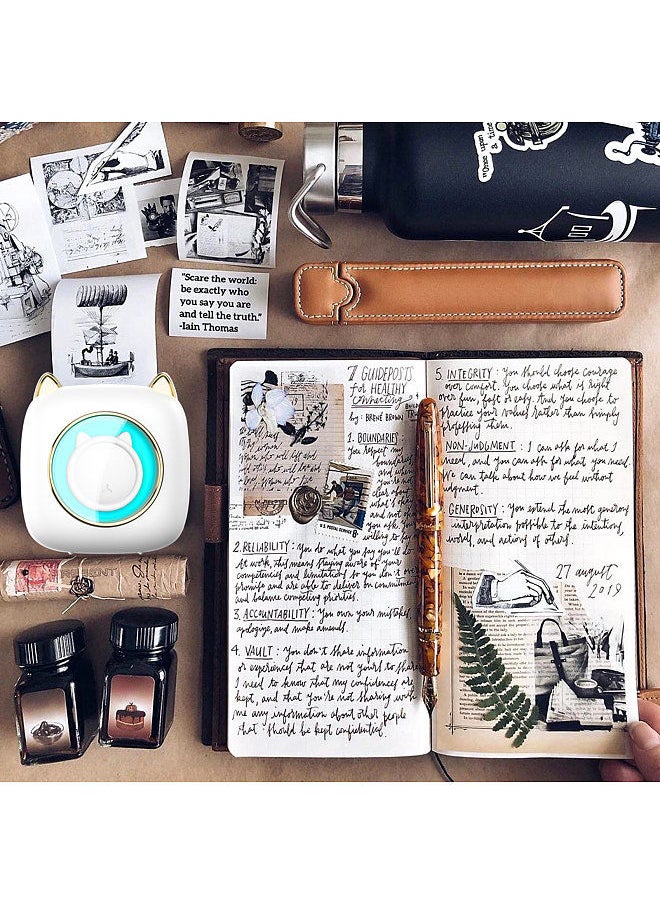 "Once upon
a time
"Scare the world:
be exactly who
you say you are
and tell the truth."
-Iain Thomas
7 GUIDEPOSTS
for HEALTHY
connecting
by: BRENÉ BROWN
1. BOUNDARIES:
You respect my
boundaries
and when
you're not
clear about
what's okay
and not
you ask. You're
willing to
U.S. POSTAL SERVICE 8¢
2. RELIABILITY: You do what you say you'll do.
At work, this means staying aware of your
competencies and limitations so you don't over
promise and are able to deliver on commitments
and balance competing priorities.
3. ACCOUNTABILITY: You own your mistakes,
apologize, and make amends.
4. VAULT: You don't share information
or experiences that are not yours to share.
I need to know that my confidences are
kept, and that you're not sharing with
me any information about other people
that should be kept confidential.
5. INTEGRITY: You should choose courage
over comfort. You choose what is right
over fun, fast or easy. And you choose to
practice your values rather than simply
professing them.
NON-JUDGMENT: I can ask for what I
need, and you can ask for what you need.
We can talk about how we feel without
judgment.
GENEROSITY: You extend the most generous
interpretation possible to the intentions,
words, and actions of others.
27 august
2019